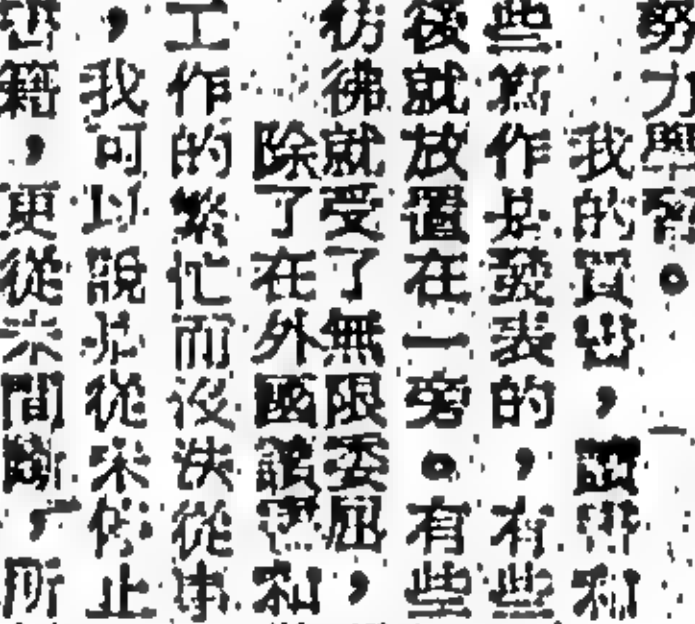 努力學習。
我的買書,國
些寫作是發表的,有些
後就放置在一旁。有些
彷彿就受了無限委屈,
除了在外國讀 和
工作的繁忙而沒法從事
,我可以說是從未停止
書籍,更從未間斷,所